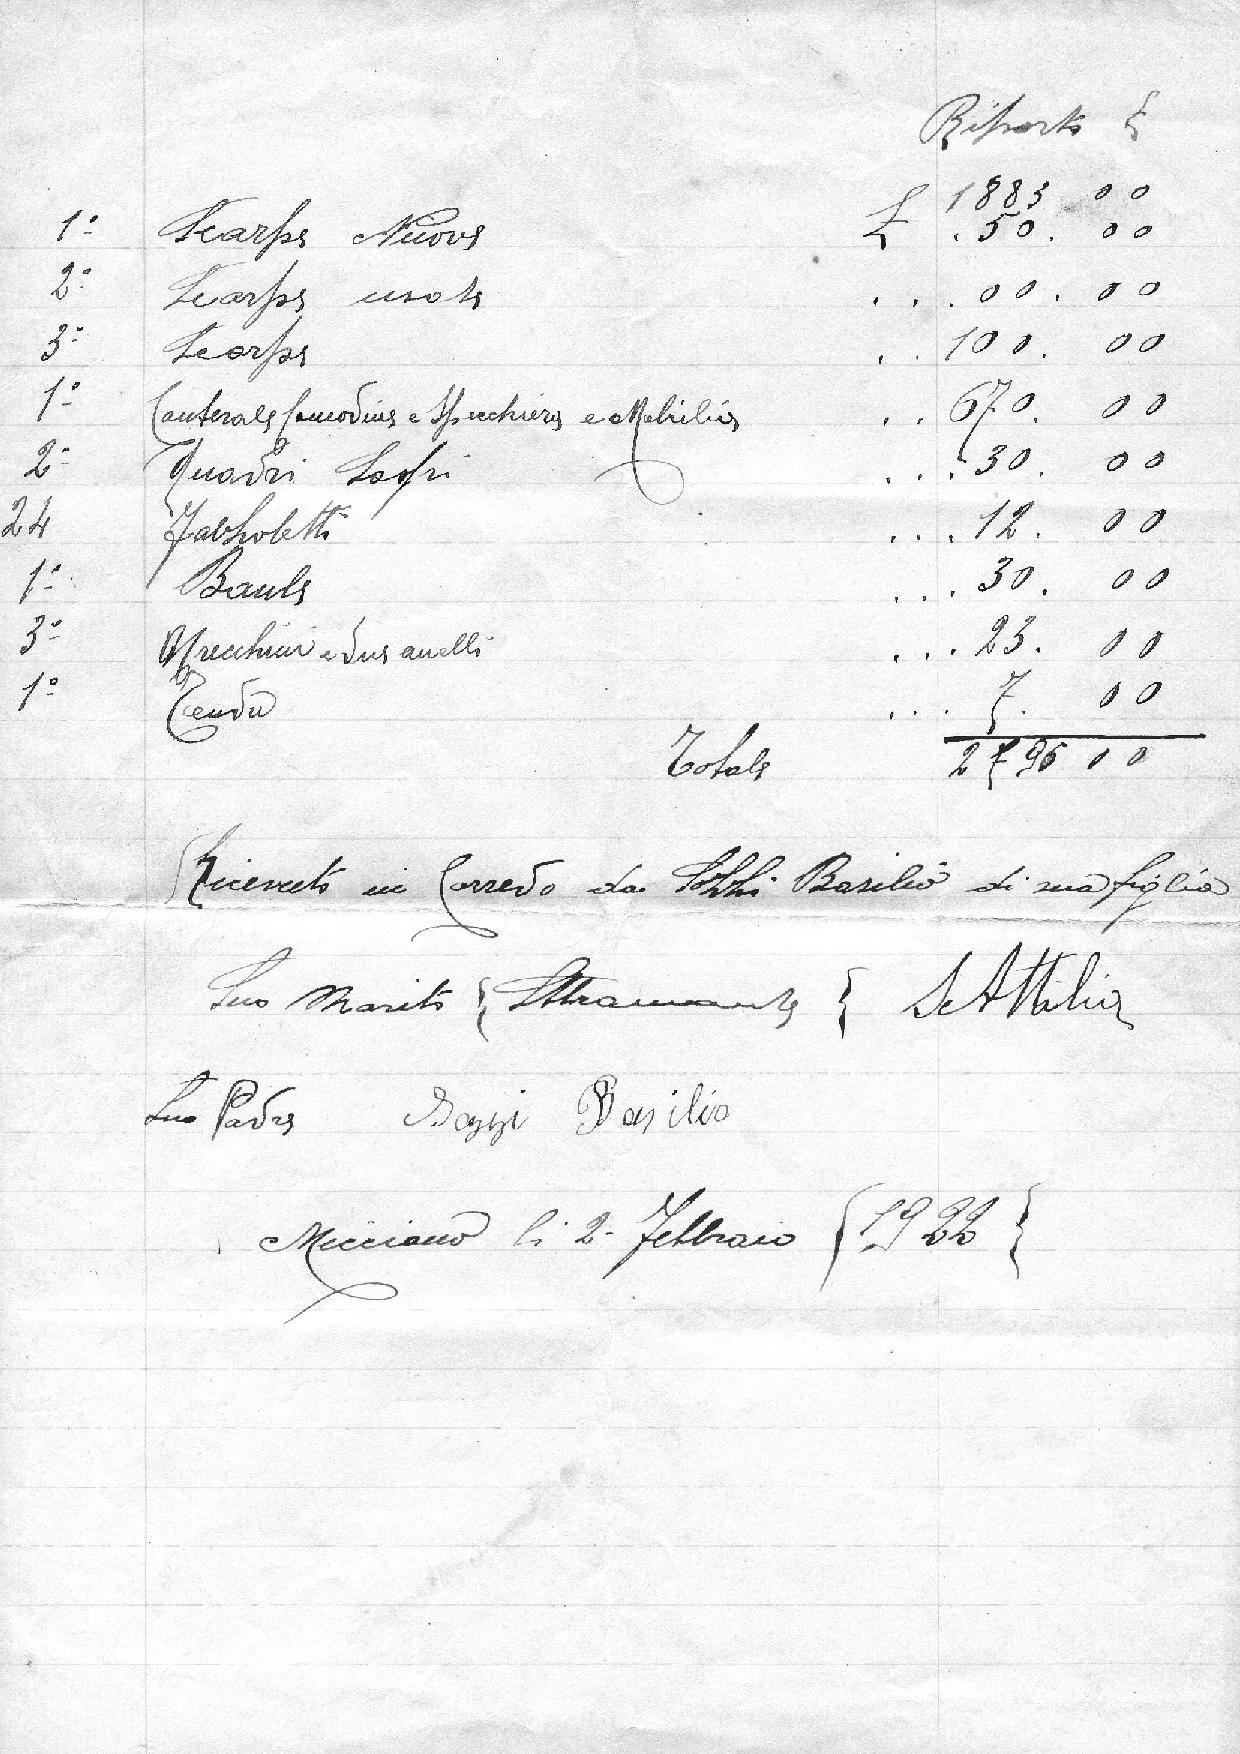 Riporto {
£ 1883 00
1º Scarpe Nuove . 50. 00
2º Scarpe usate ... 00. 00
3º Scarpe .. 100. 00
1º Canterale Comodino e Specchiera e Mobilia .. 670. 00
2º Quadri Sagri ... 30. 00
24 Fazholetti ... 12. 00
1º Baule ... 30. 00
3º Orecchini e due anelli ... 23. 00
1º ... 7. 00
Totale 2796 00
Ricevuto in Corredo da Basilio di sua figlia
Suo Marito { }
Suo Padre Gozzi Basilio
Micciano li 2- Febbraio {1922}